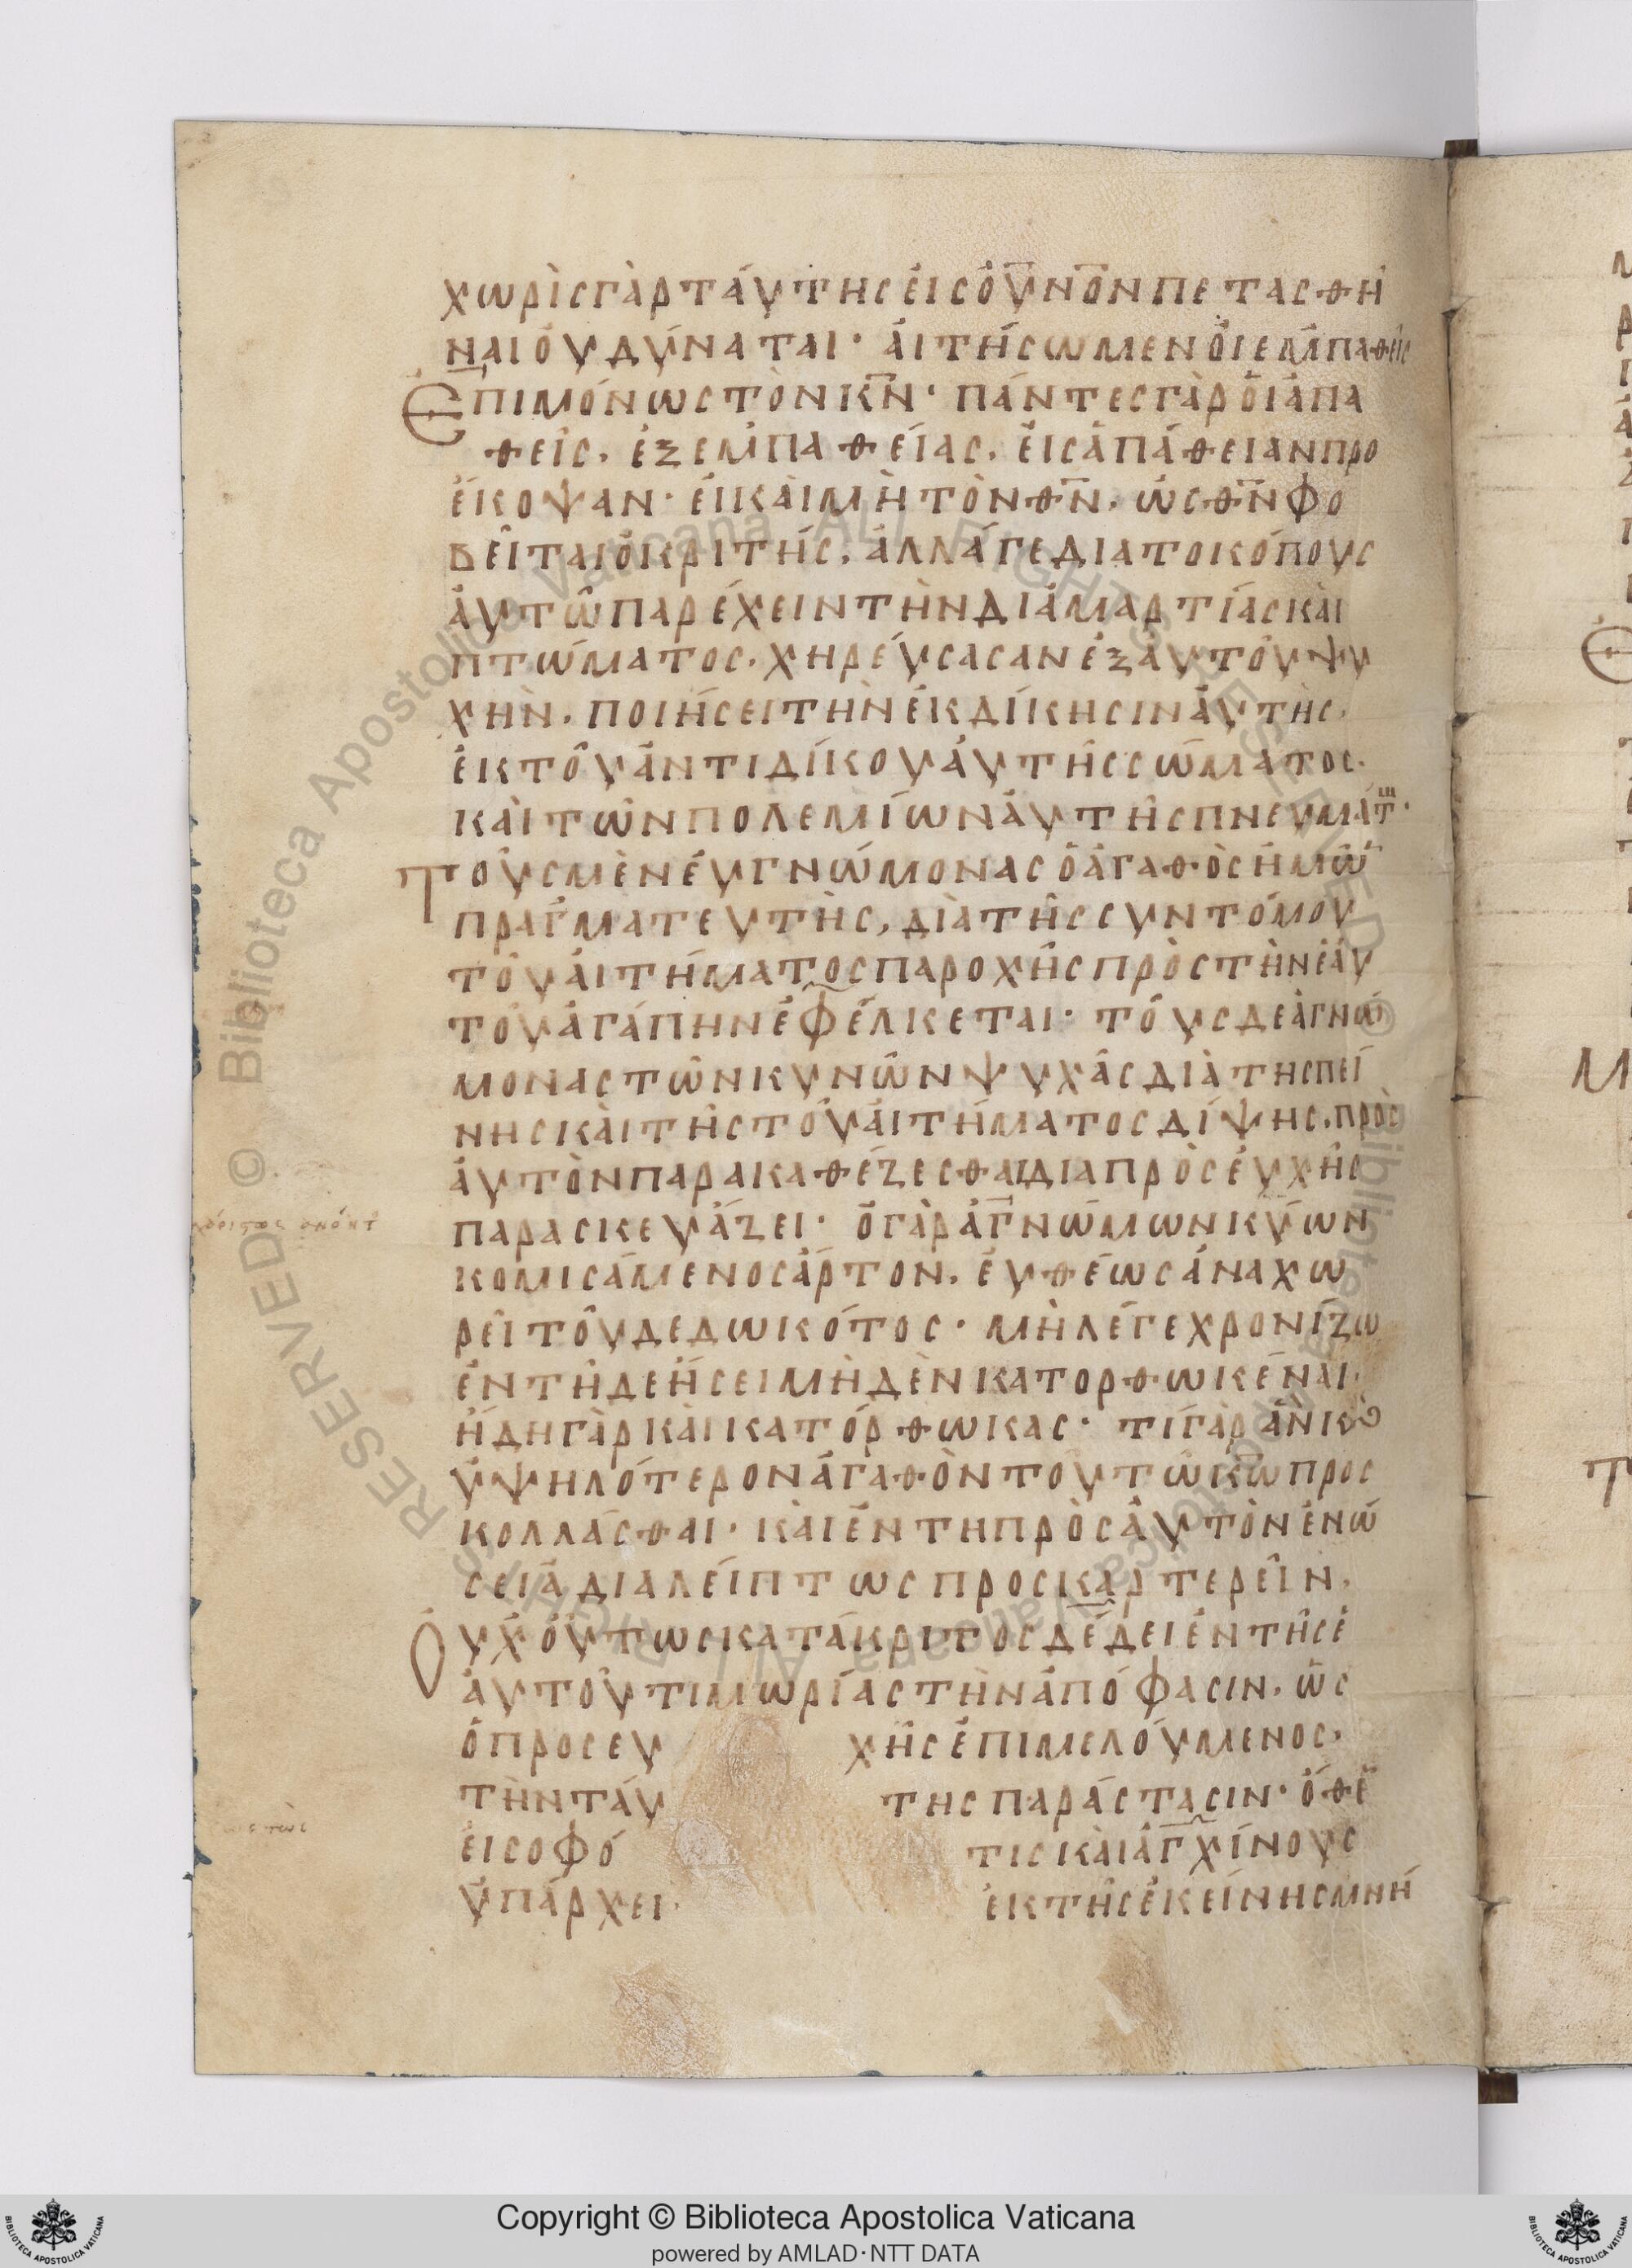 χωρὶς γὰρ ταύτης εἰς οὐ̅ν̅ο̅ν πετασθῆ
ναι οὐ δύναται· αἰτήσωμεν οἱ ἐμπαθεῖς
Ἐπιμόνως τὸν κ̅ν̅· πάντες γὰρ οἱ ἀπα
θεῖς, ἐξ ἐμπαθείας, εἰς ἀπάθειαν προ
έκοψαν· εἰ καὶ μὴ τὸν θ̅ν̅, ὡς θ̅ν̅ φο
βεῖται ὁ κριτής, ἀλλά γε δια το κόπους
αὐτῷ παρέχειν τὴν δι ἁμαρτίας καὶ
πτώματος, χηρεύσασαν ἐξ αὐτοῦ ψυ
χὴν, ποιήσει τὴν ἐκδίκησιν αὐτῆς,
ἐκ τοῦ ἀντιδίκου αὐτῆς σώματος,
καὶ τῶν πολεμίων αὐτῆς πνευμάτ·
Τοὺς μὲν εὐγνώμονας ὁ ἀγαθὸς ἡμῶ
πραγματευτὴς, διὰ τῆς συντόμου
τοῦ αἰτήματος παροχῆς πρὸς τὴν ἑαυ
τοῦ ἀγάπην ἐφέλκεται· τοὺς δε ἀγνώ
μονας τῶν κυνῶν ψυχὰς διὰ της πεί
νης καὶ τῆς τοῦ αἰτήματος δίψης, πρὸς
αὐτὸν παρακαθέζεσθαι δια προσευχῆς
παρασκευάζει· ὁ γὰρ ἀγνώμων κύων
κομισάμενος ἄρτον, εὐθέως ἀναχω
ρεῖ τοῦ δεδωκότος· μὴ λέγε χρονίζω
ἐν τῇ δεήσει μὴδὲν κατορθωκέναι,
ἤδη γὰρ καὶ κατόρθωκας· τί γὰρ ἂν κ
ὑψηλότερον ἀγαθὸν του τῷ κ̅ω̅ προς
κολλᾶσθαι· καὶ ἐν τη πρὸς αὐτὸν ἑνώ
σει ἀδιαλείπτως προσκαρτερεῖν,
Οὐχ οὕτως κατάκριτος δέδει ἐν τῆς ἑ
αυτοῦ τιμωρίας τὴν ἀπόφασιν, ὡς
ὁ προσευ χῆς ἐπιμελούμενος,
τὴν ταύ της παράστασιν· ὅθε
εἰ σοφό τις καὶ ἀγχίνους
ὑπάρχει, ἐκ τῆς ἐκείνης μνή